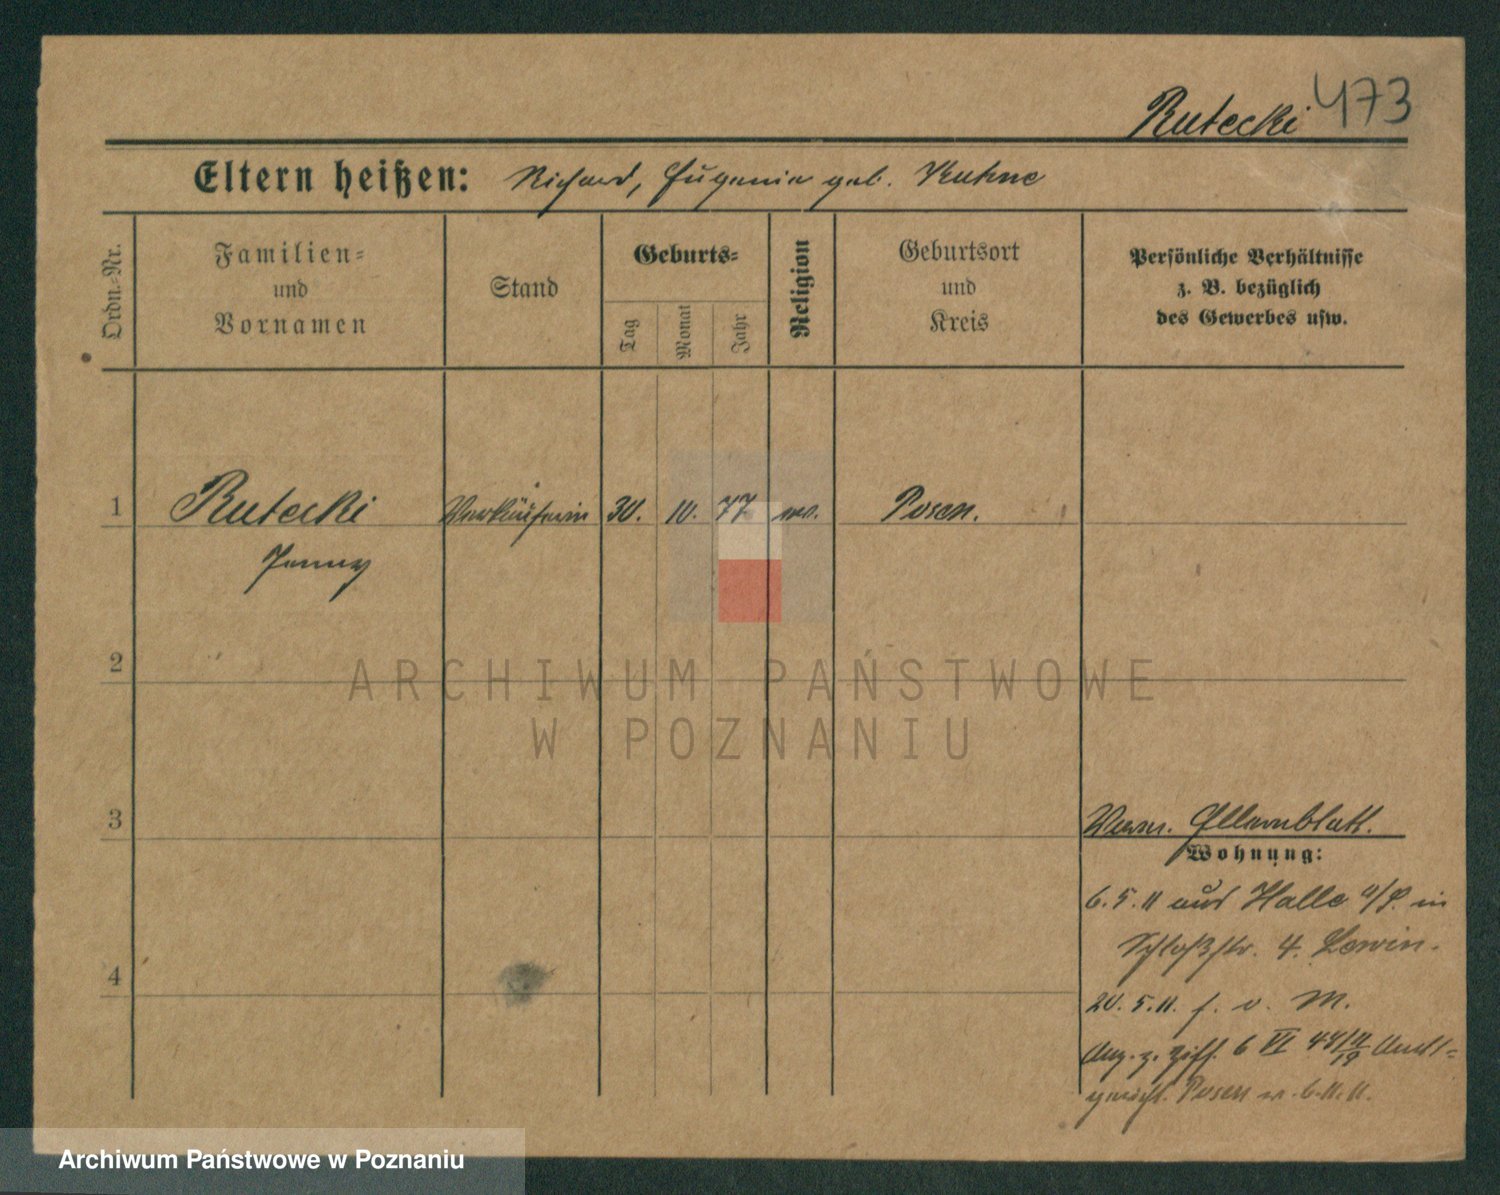 Rutecki 473
Eltern heißen: Richard, Eugenia geb. Kuhne
Ordn.-Nr.
Familien-
und
Vornamen
Stand
Geburts-
Tag
Monat
Jahr
Religion
Geburtsort
und
Kreis
Persönliche Verhältnisse
z. B. bezüglich
des Gewerbes usw.
1 Rutecki Verkäuferin 30. 10. 77 ev. Posen.
Jenny
2
ARCHIWUM PAŃSTWOWE
W POZNANIU
3
Verm. Elternblatt.
Wohnung:
6. 5. 11 aus Halle a/S. in
Schloßstr. 4. Lewin.
4
20. 5. 11. f. v. M.
Anz. z. Ziff. 6 VI Amts-
gericht. Posen v. 6. 11. 11.
Archiwum Państwowe w Poznaniu